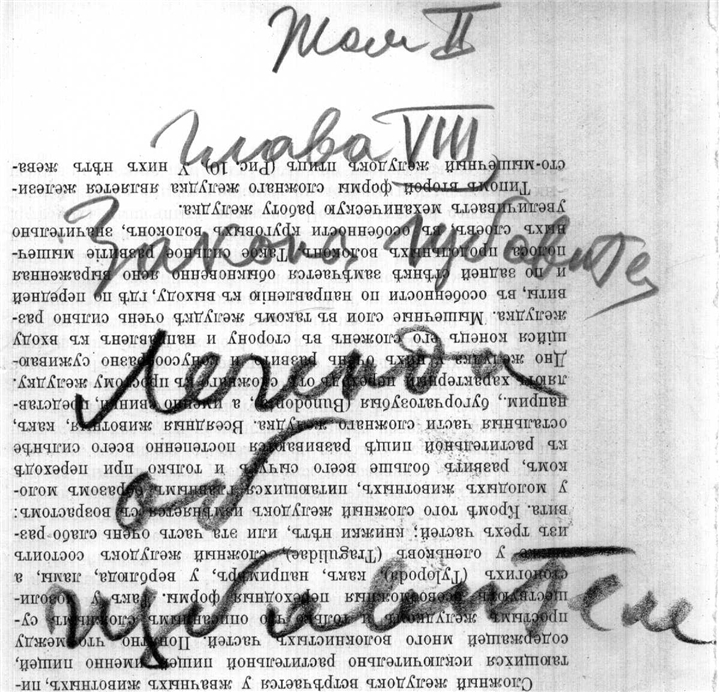 Том II
Глава VIII
Закона
Легенда
об
избавителе
Сложный желудокъ встрѣчается у жвачныхъ животныхъ, пи-
тающихся исключительно растительной пищей, именно пищей,
содержащей много волокнистыхъ частей. Понятно, что между
простымъ желудкомъ и только что описаннымъ сложнымъ су-
ществуютъ всевозможныя переходныя формы. Такъ у мозоли-
стоногихъ (Tylopoda), какъ, напримѣръ, у верблюда, ламы, а
также у оленьковъ (Tragulidae), сложный желудокъ состоитъ
изъ трехъ частей: книжки нѣтъ, или эта часть очень слабо раз-
вита. Кромѣ того сложный желудокъ измѣняется съ возрастомъ:
у молодыхъ животныхъ, питающихся главнымъ образомъ моло-
комъ, развитъ больше всего сычугъ и только при переходѣ
къ растительной пищѣ развиваются постепенно всего сильнѣе
остальныя части сложнаго желудка. Всеядныя животныя, какъ,
наприм., бугорчатозубыя (Bunodonta), а именно свиньи, представ-
ляютъ характерный переходъ отъ сложнаго къ простому желудку.
Дно желудка у нихъ очень развито и конусообразно суживаю-
щійся конецъ его сложенъ въ сторону и направленъ къ входу
желудка. Мышечные слои въ такомъ желудкѣ очень сильно раз-
виты, въ особенности по направленію къ выходу, гдѣ по передней
и по задней стѣнкѣ замѣчается обыкновенно ясно выраженная
полоса продольныхъ волоконъ. Такое сильное развитіе мышеч-
ныхъ слоевъ, въ особенности круговыхъ волоконъ, значительно
увеличиваетъ механическую работу желудка.
Типомъ второй формы сложнаго желудка является железис-
то-мышечный желудокъ птицъ (Рис. 10). У нихъ нѣтъ жева-